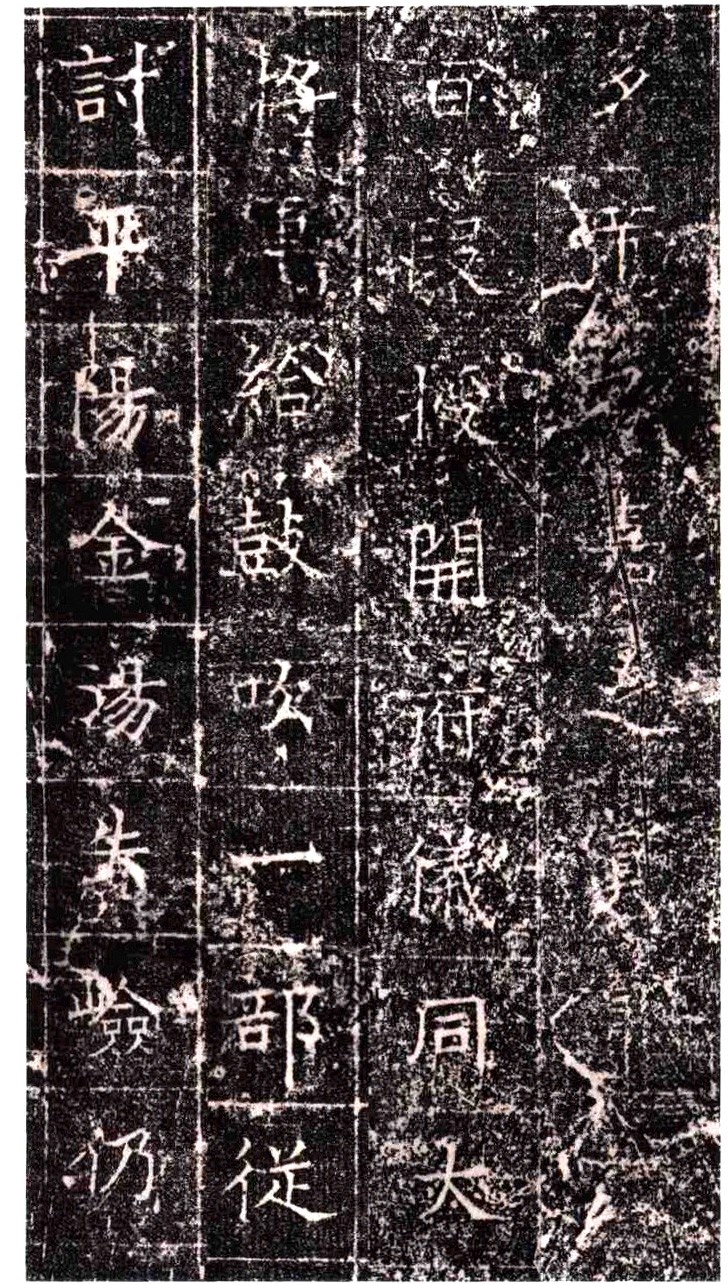 多 嘉之
百段授開府儀同大
將軍給鼓吹一部從
討平陽金湯失險仍